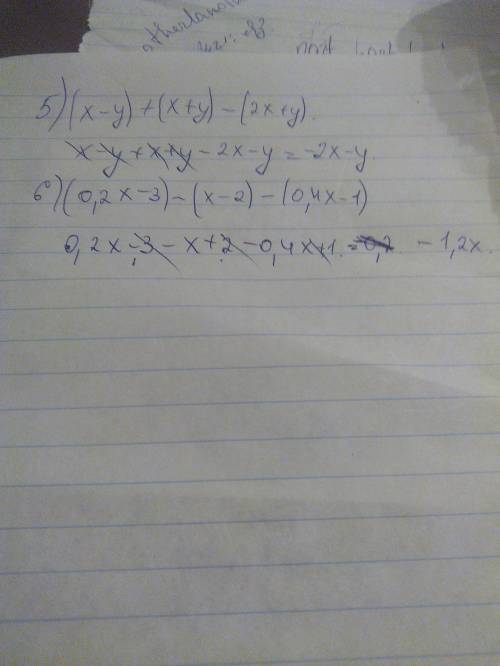 5) (x-y)+(x+y)-(2x+y).
x-y+x+y-2x-y=-2x-y.
6) (0,2x-3)-(x-2)-(0,4x-1)
0,2x-3-x+2-0,4x+1.= -1,2x.